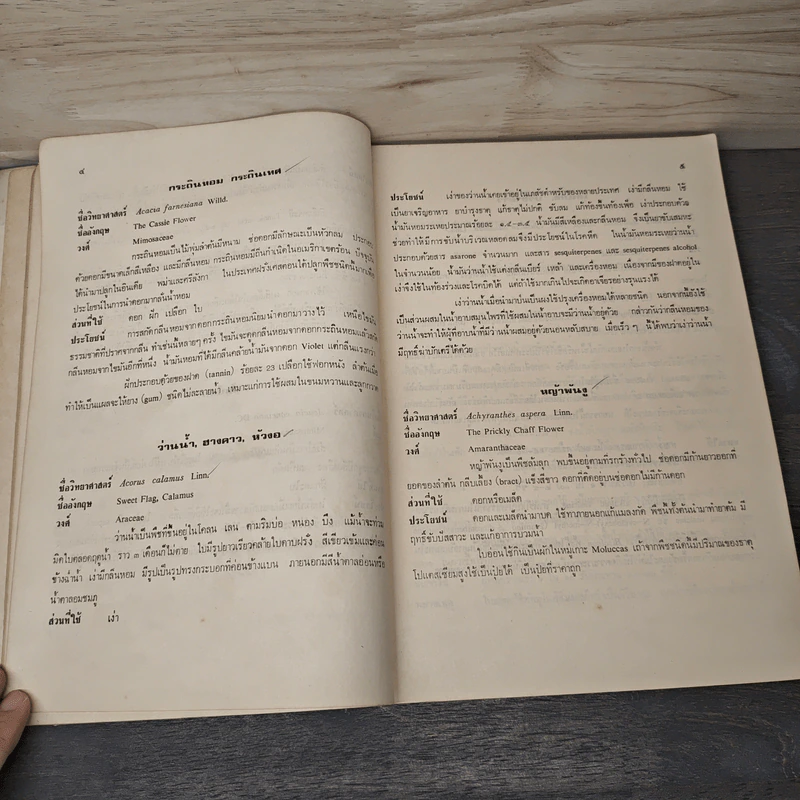 ๔
กระถินหอม กระถินเทศ
ชื่อวิทยาศาสตร์ Acacia farnesiana Willd.
ชื่ออังกฤษ The Cassie Flower
วงศ์ Mimosaceae
กระถินเป็นไม้พุ่มลำต้นมีหนาม ช่อดอกมีลักษณะเป็นหัวกลม ประกอบ
ด้วยดอกมีขนาดเล็กสีเหลือง และมีกลิ่นหอม กระถินมีถิ่นกำเนิดในอเมริกาเขตร้อน ปัจจุบัน
ได้นำมาปลูกในอินเดีย พม่าและศรีลังกา ในประเทศฝรั่งเศสตอนใต้ปลูกพืชชนิดนี้มากเพื่อ
ประโยชน์ในการนำดอกมากลั่นน้ำหอม
ส่วนที่ใช้ ดอก ฝัก เปลือก ใบ
ประโยชน์ การสกัดกลิ่นหอมจากดอกกระถินนิยมนำดอกมาวางไว้ เหนือไขมัน
ธรรมชาติที่ปราศจากกลิ่น ทำเช่นนี้หลายๆ ครั้ง ไขมันจะดูดกลิ่นหอมจากดอกกระถินแล้วสกัด
กลิ่นหอมจากไขมันอีกทีหนึ่ง น้ำมันหอมที่ได้มีกลิ่นคล้ายน้ำมันจากดอก Violet แต่กลิ่นแรงกว่า
ฝักประกอบด้วยของฝาด (tannin) ร้อยละ 23 เปลือกใช้ฟอกหนัง ลำต้นเมื่อ
ทำให้เป็นแผลจะให้ยาง (gum) ชนิดไม่ละลายน้ำ เหมาะแก่การใช้ผสมในขนมหวานและลูกกวาด
ว่านน้ำ, ฮางคาว, หัวงอ
ชื่อวิทยาศาสตร์ Acorus calamus Linn.
ชื่ออังกฤษ Sweet Flag, Calamus
วงศ์ Araceae
ว่านน้ำเป็นพืชที่ขึ้นอยู่ในโคลน เลน ตามริมบ่อ หนอง บึง แม้น้ำจะท่วม
มิดใบตลอดฤดูน้ำ ราว ๓ เดือนก็ไม่ตาย ใบมีรูปยาวเรียวคล้ายใบดาบฝรั่ง สีเขียวเข้มและค่อน
ข้างฉ่ำน้ำ เหง้ามีกลิ่นหอม มีรูปเป็นรูปทรงกระบอกที่ค่อนข้างแบน ภายนอกมีสีน้ำตาลอ่อนหรือ
น้ำตาลอมชมภู
ส่วนที่ใช้ เหง้า
๕
ประโยชน์ เหง้าของว่านน้ำเคยเข้าอยู่ในเภสัชตำหรับของหลายประเทศ เหง้ามีกลิ่นหอม ใช้
เป็นยาเจริญอาหาร ยาบำรุงธาตุ แก้ธาตุไม่ปกติ ขับลม แก้ท้องขึ้นท้องเฟ้อ เหง้าประกอบด้วย
น้ำมันหอมระเหยประมาณร้อยละ ๑.๕-๓.๕ น้ำมันมีสีเหลืองและกลิ่นหอม จึงเป็นยาขับเสมหะ
ช่วยทำให้มีการขับน้ำบริเวณหลอดลมซึ่งมีประโยชน์ในโรคหืด ในน้ำมันหอมระเหยว่านน้ำ
ประกอบด้วยสาร asarone จำนวนมาก และสาร sesquiterpenes และ sesquiterpenes alcohol
ในจำนวนน้อย น้ำมันว่านน้ำใช้แต่งกลิ่นเบียร์ เหล้า และเครื่องหอม เนื่องจากมีของฝาดอยู่ใน
เหง้าจึงใช้ในท้องร่วงและโรคบิดได้ แต่ถ้าใช้มากเกินไปจะเกิดอาเจียรอย่างรุนแรงได้
เหง้าว่านน้ำเมื่อนำมาบ่นเป็นผงใช้ปรุงเครื่องหอมได้หลายชนิด นอกจากนี้ยังใช้
เป็นส่วนผสมในน้ำอาบสมุนไพรที่ใช้ผสมในน้ำอาบจะมีว่านน้ำอยู่ด้วย กล่าวกันว่ากลิ่นหอมของ
ว่านน้ำจะทำให้ผู้ที่อาบน้ำที่มีว่านน้ำผสมอยู่ด้วยนอนหลับสบาย เมื่อเร็ว ๆ นี้ได้พบว่าเหง้าว่านน้ำ
มีฤทธิ์ฆ่าบักเตรีได้ด้วย
หญ้าพันงู
ชื่อวิทยาศาสตร์ Achyranthes aspera Linn.
ชื่ออังกฤษ The Prickly Chaff Flower
วงศ์ Amaranthaceae
หญ้าพันงูเป็นพืชล้มลุก พบขึ้นอยู่ตามที่รกร้างทั่วไป ช่อดอกมีก้านยาวออกที่
ยอดของลำต้น กลีบเลี้ยง (bract) แข็งสีขาว ดอกที่ติดอยู่บนช่อดอกไม่มีก้านดอก
ส่วนที่ใช้ ดอกหรือเมล็ด
ประโยชน์ ดอกและเมล็ดนำมาบด ใช้ทาภายนอกแก้แมลงกัด พืชทั้งต้นนำมาทำยาต้ม มี
ฤทธิ์ขับปัสสาวะ และแก้อาการบวมน้ำ
ใบอ่อนใช้กินเป็นผักในหมู่เกาะ Moluccas เถ้าจากพืชชนิดนี้มีปริมาณของธาตุ
โปแตสเซียมสูงใช้เป็นปุ๋ยได้ เป็นปุ๋ยที่ราคาถูก